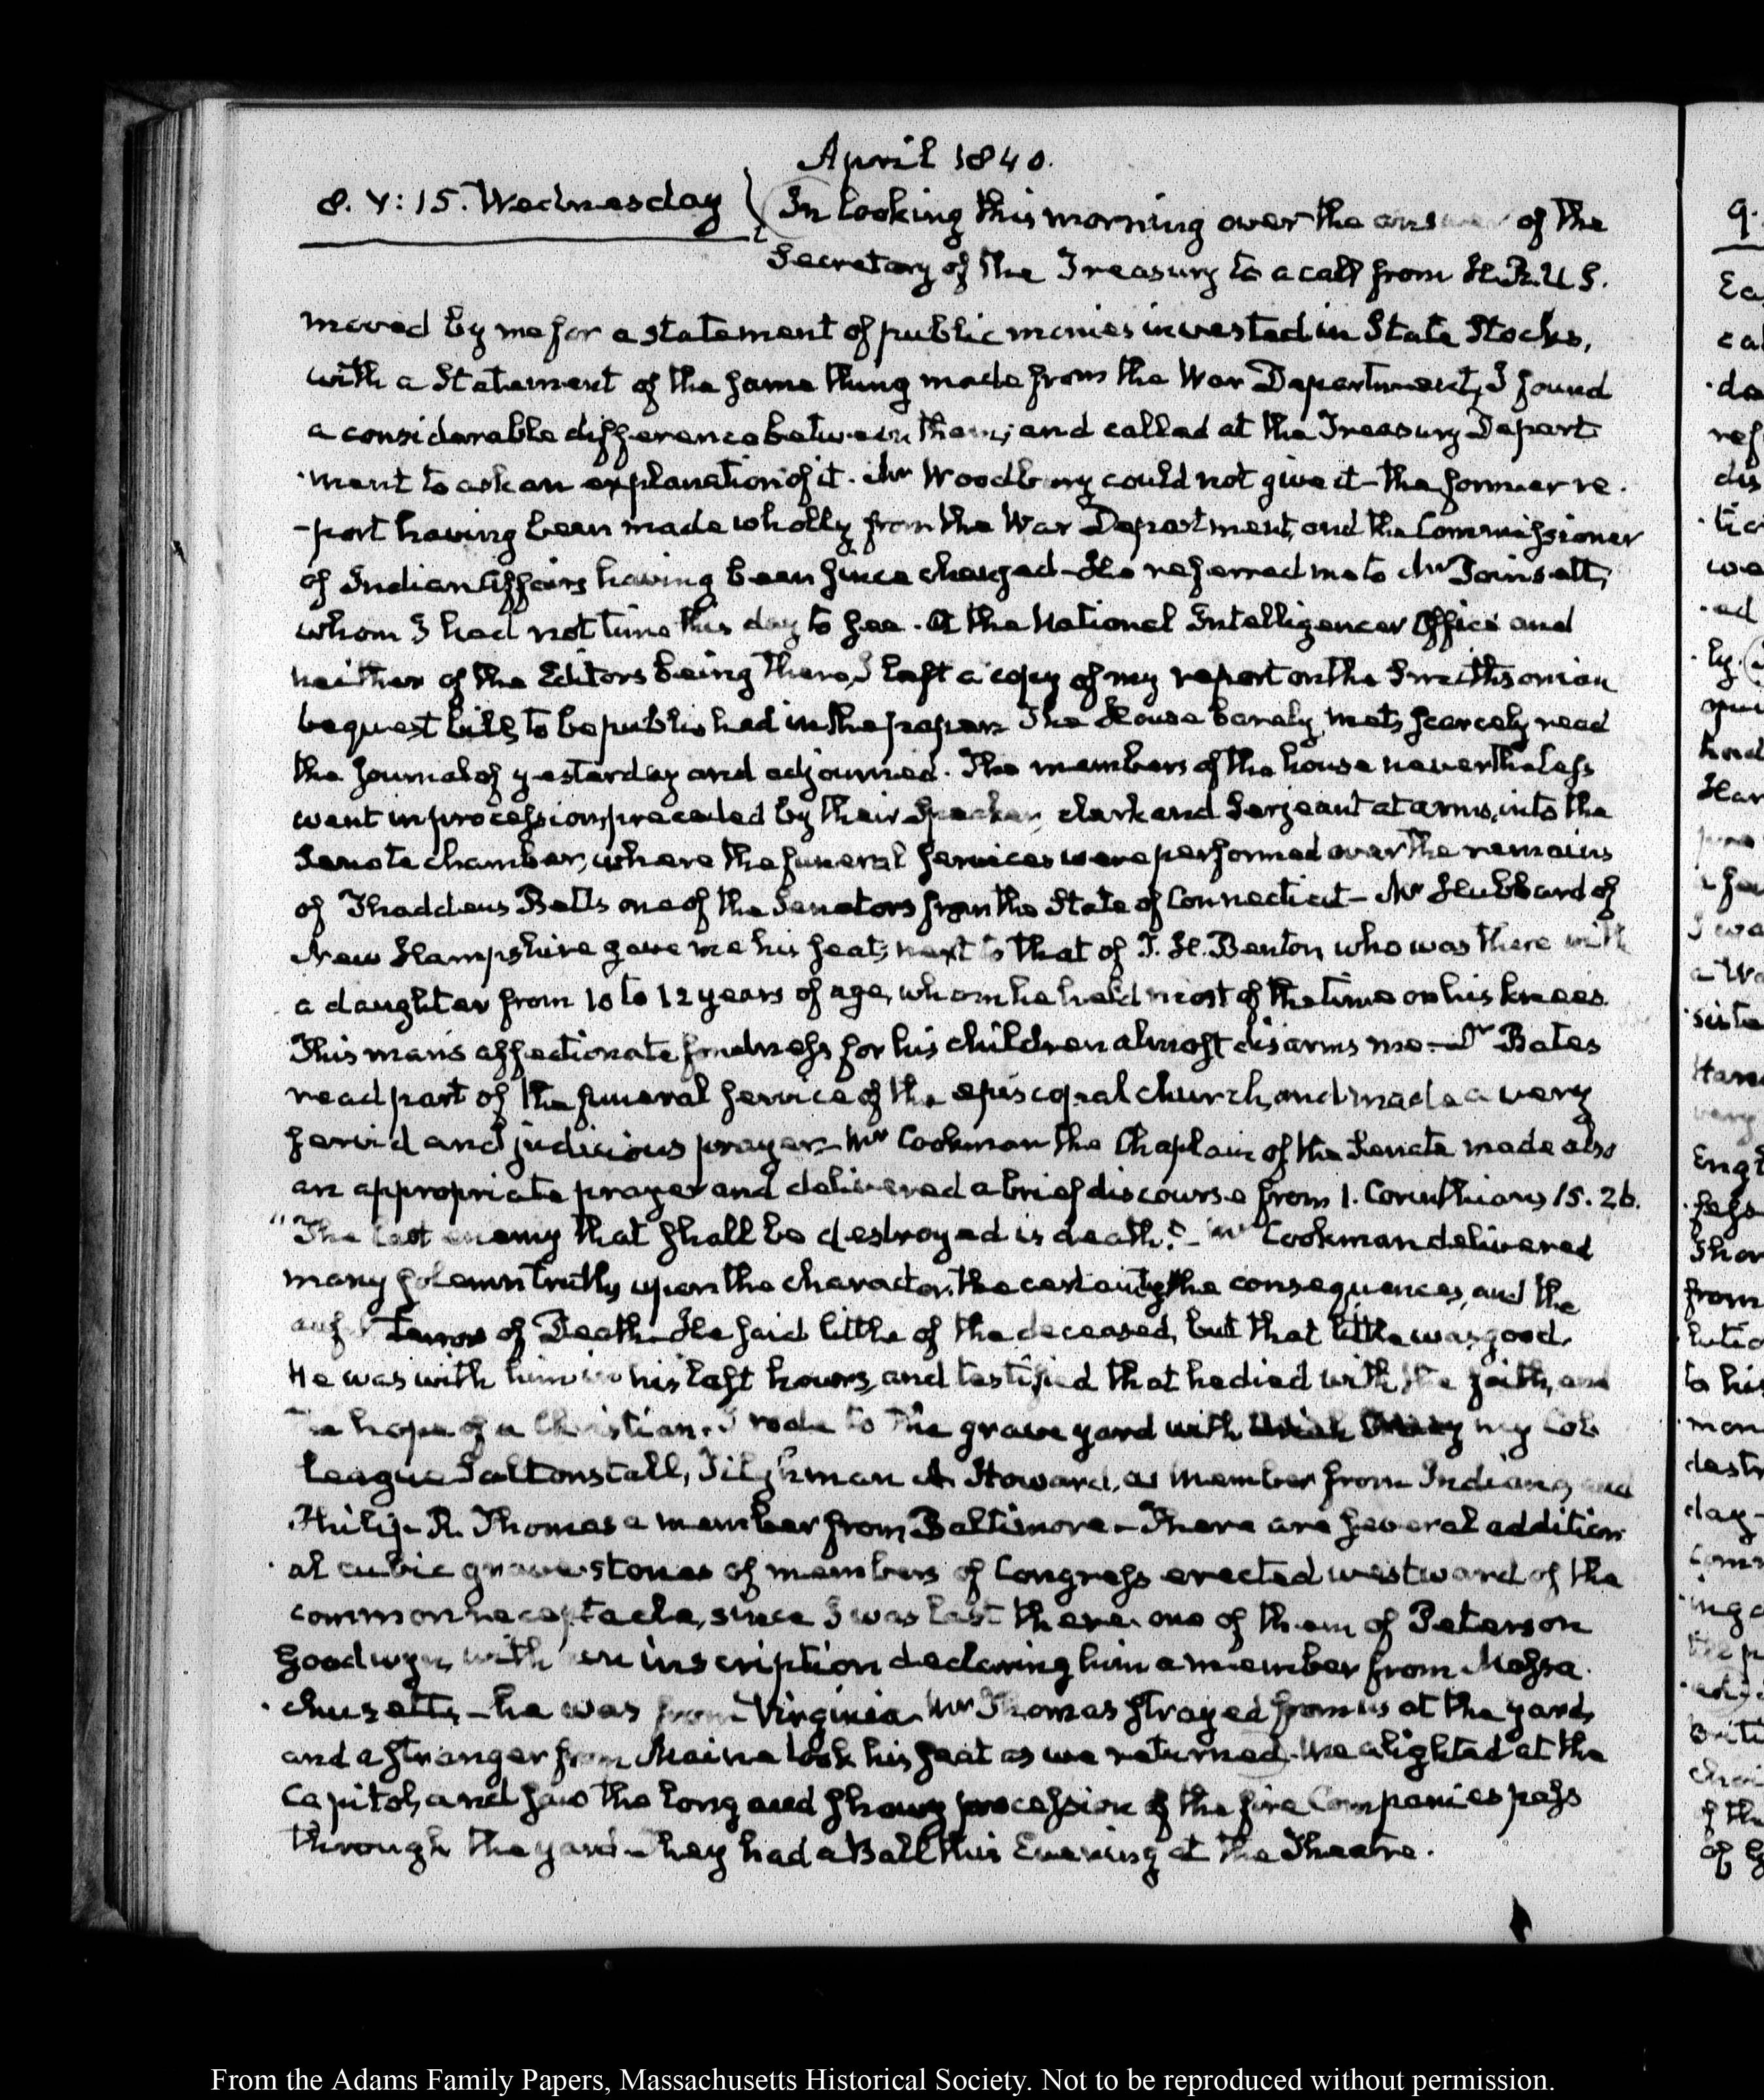 April 1840.
8. V: 15. Wednesday
In looking this morning over the answer of the
Secretary of the Treasury to a call from H.R.U.S.
moved by me for a statement of public monies invested in State Stocks,
with a Statement of the same thing made from the War Department, I found
a considerable difference between them; and called at the Treasury Depart
-ment to ask an explanation of it. Mr Woodbury could not give it - the former re-
-port having been made wholly from the War Department, and the Commissioner
of Indian Affairs having been since changed - He referred me to Mr Poinsett,
whom I had not time this day to see. At the National Intelligencer Office and
neither of the Editors being there, I left a copy of my report on the Smithsonian
bequest bill, to be published in the paper. The House barely met, scarcely read
the journal of yesterday and adjourned. The members of the house nevertheless
went in procession, preceded by their Speaker, clerk and Serjeant at arms, into the
Senate chamber, where the funeral services were performed over the remains
of Thaddeus Betts one of the Senators from the State of Connecticut - Mr Hubbard of
New Hampshire gave me his seat, next to that of T. H. Benton who was there with
a daughter from 10 to 12 years of age, whom he held most of the time on his knees.
This man's affectionate fondness for his children almost disarms me - Dr Bates
read part of the funeral service of the episcopal church, and made a very
fervid and judicious prayer - Mr Cookman the Chaplain of the Senate made also
an appropriate prayer and delivered a brief discourse from 1. Corinthians 15. 26.
"The last enemy that shall be destroyed is death." - Mr Cookman delivered
many solemn truths upon the character, the certainty, the consequences, and the
terrors of Death - He said little of the deceased, but that little was good.
He was with him in his last hours, and testified that he died with the faith, and
the hope of a Christian. I rode to the grave yard with my Col-
league Saltonstall, Tilghman A. Howard, a member from Indiana, and
Philip R. Thomas a member from Baltimore - There are several addition-
-al cubic grave stones of members of Congress erected westward of the
common receptacle, since I was last there. one of them of Peterson
Goodwyn, with an inscription declaring him a member from Massa-
-chusetts, - he was from Virginia. Mr Thomas strayed from us at the yard,
and a stranger from Maine took his seat as we returned. We alighted at the
Capitol, and saw the long and showy procession of the fire Companies pass
through the yard - They had a Ball this Evening at the Theatre.
9.
From the Adams Family Papers, Massachusetts Historical Society. Not to be reproduced without permission.